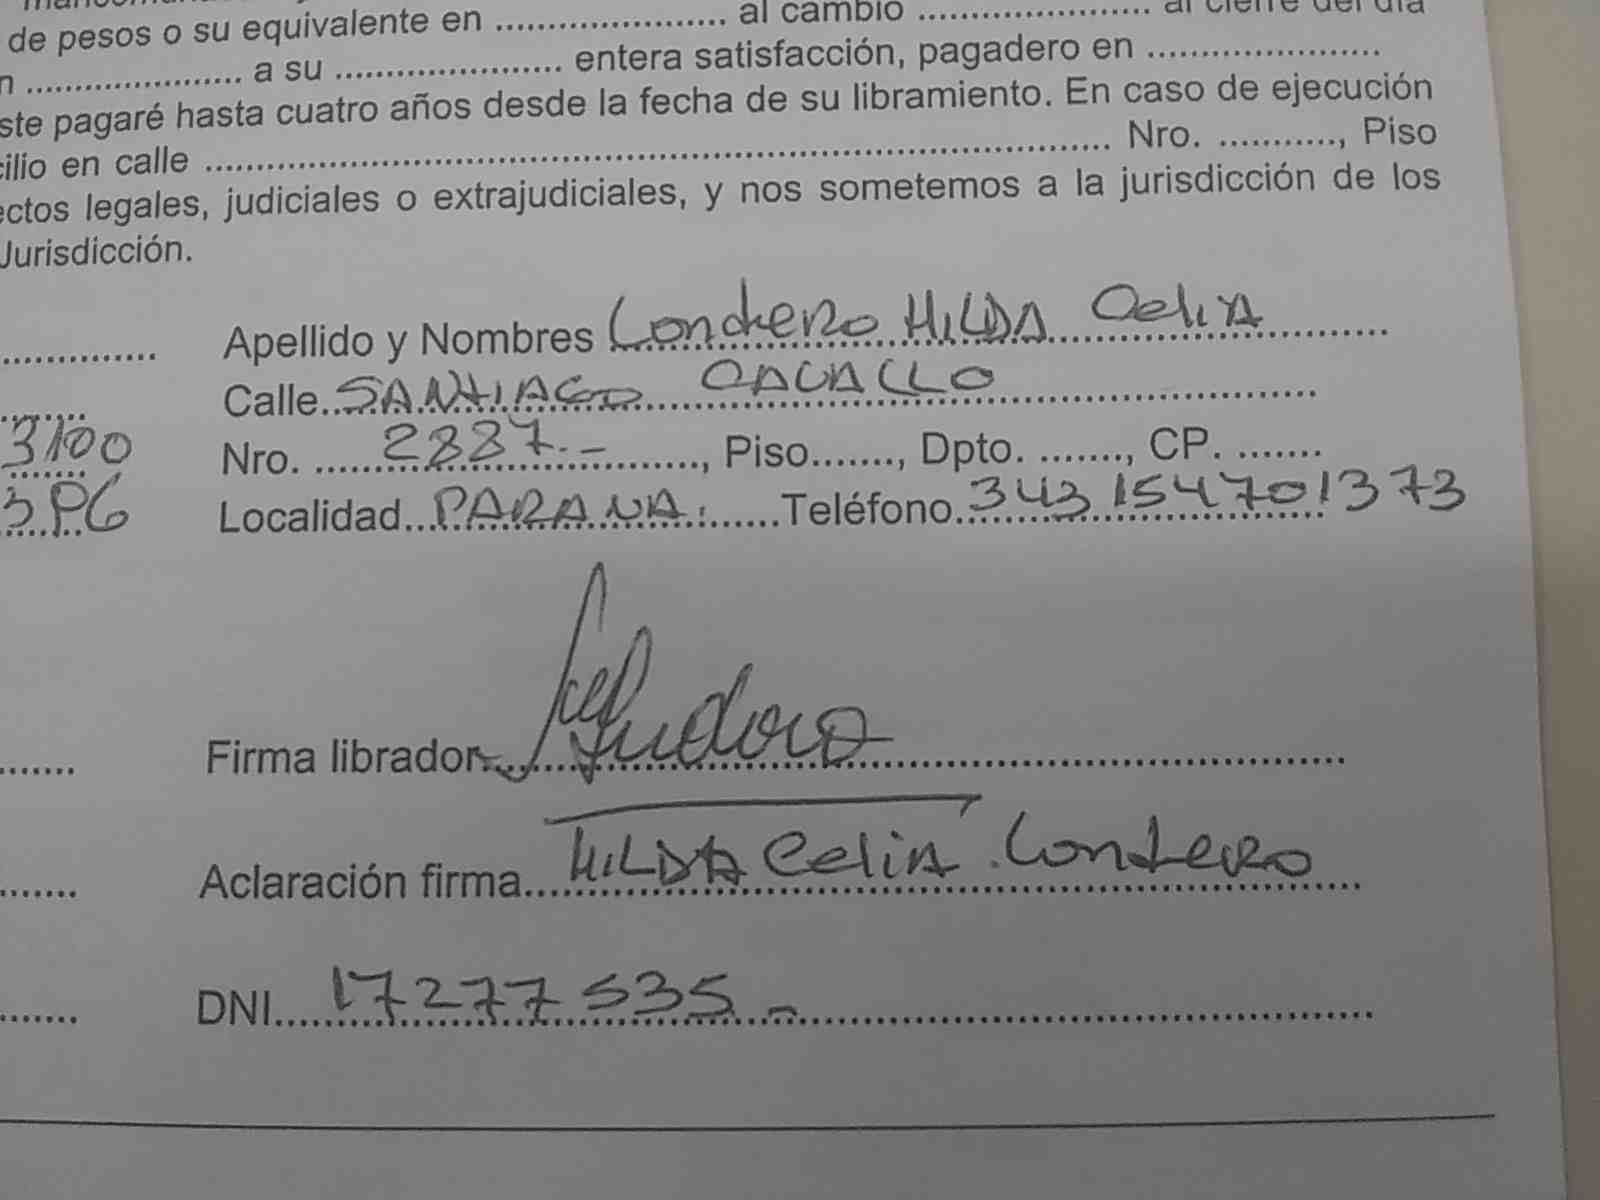 de pesos o su equivalente en ...................... al cambio ...................... al cierre del día
n ..................... a su ...................... entera satisfacción, pagadero en ......................
ste pagaré hasta cuatro años desde la fecha de su libramiento. En caso de ejecución
cilio en calle .................................................................................... Nro. ..........., Piso
ectos legales, judiciales o extrajudiciales, y nos sometemos a la jurisdicción de los
Jurisdicción.
Apellido y Nombres Londero HILDA Celia
Calle SANTIAGO CAVALLO
3100 Nro. 2887.-, Piso......., Dpto. ......., CP. .......
Localidad PARANA. Teléfono 343 154701373
Firma librador
Aclaración firma HILDA Celia Londero
DNI 17277535-